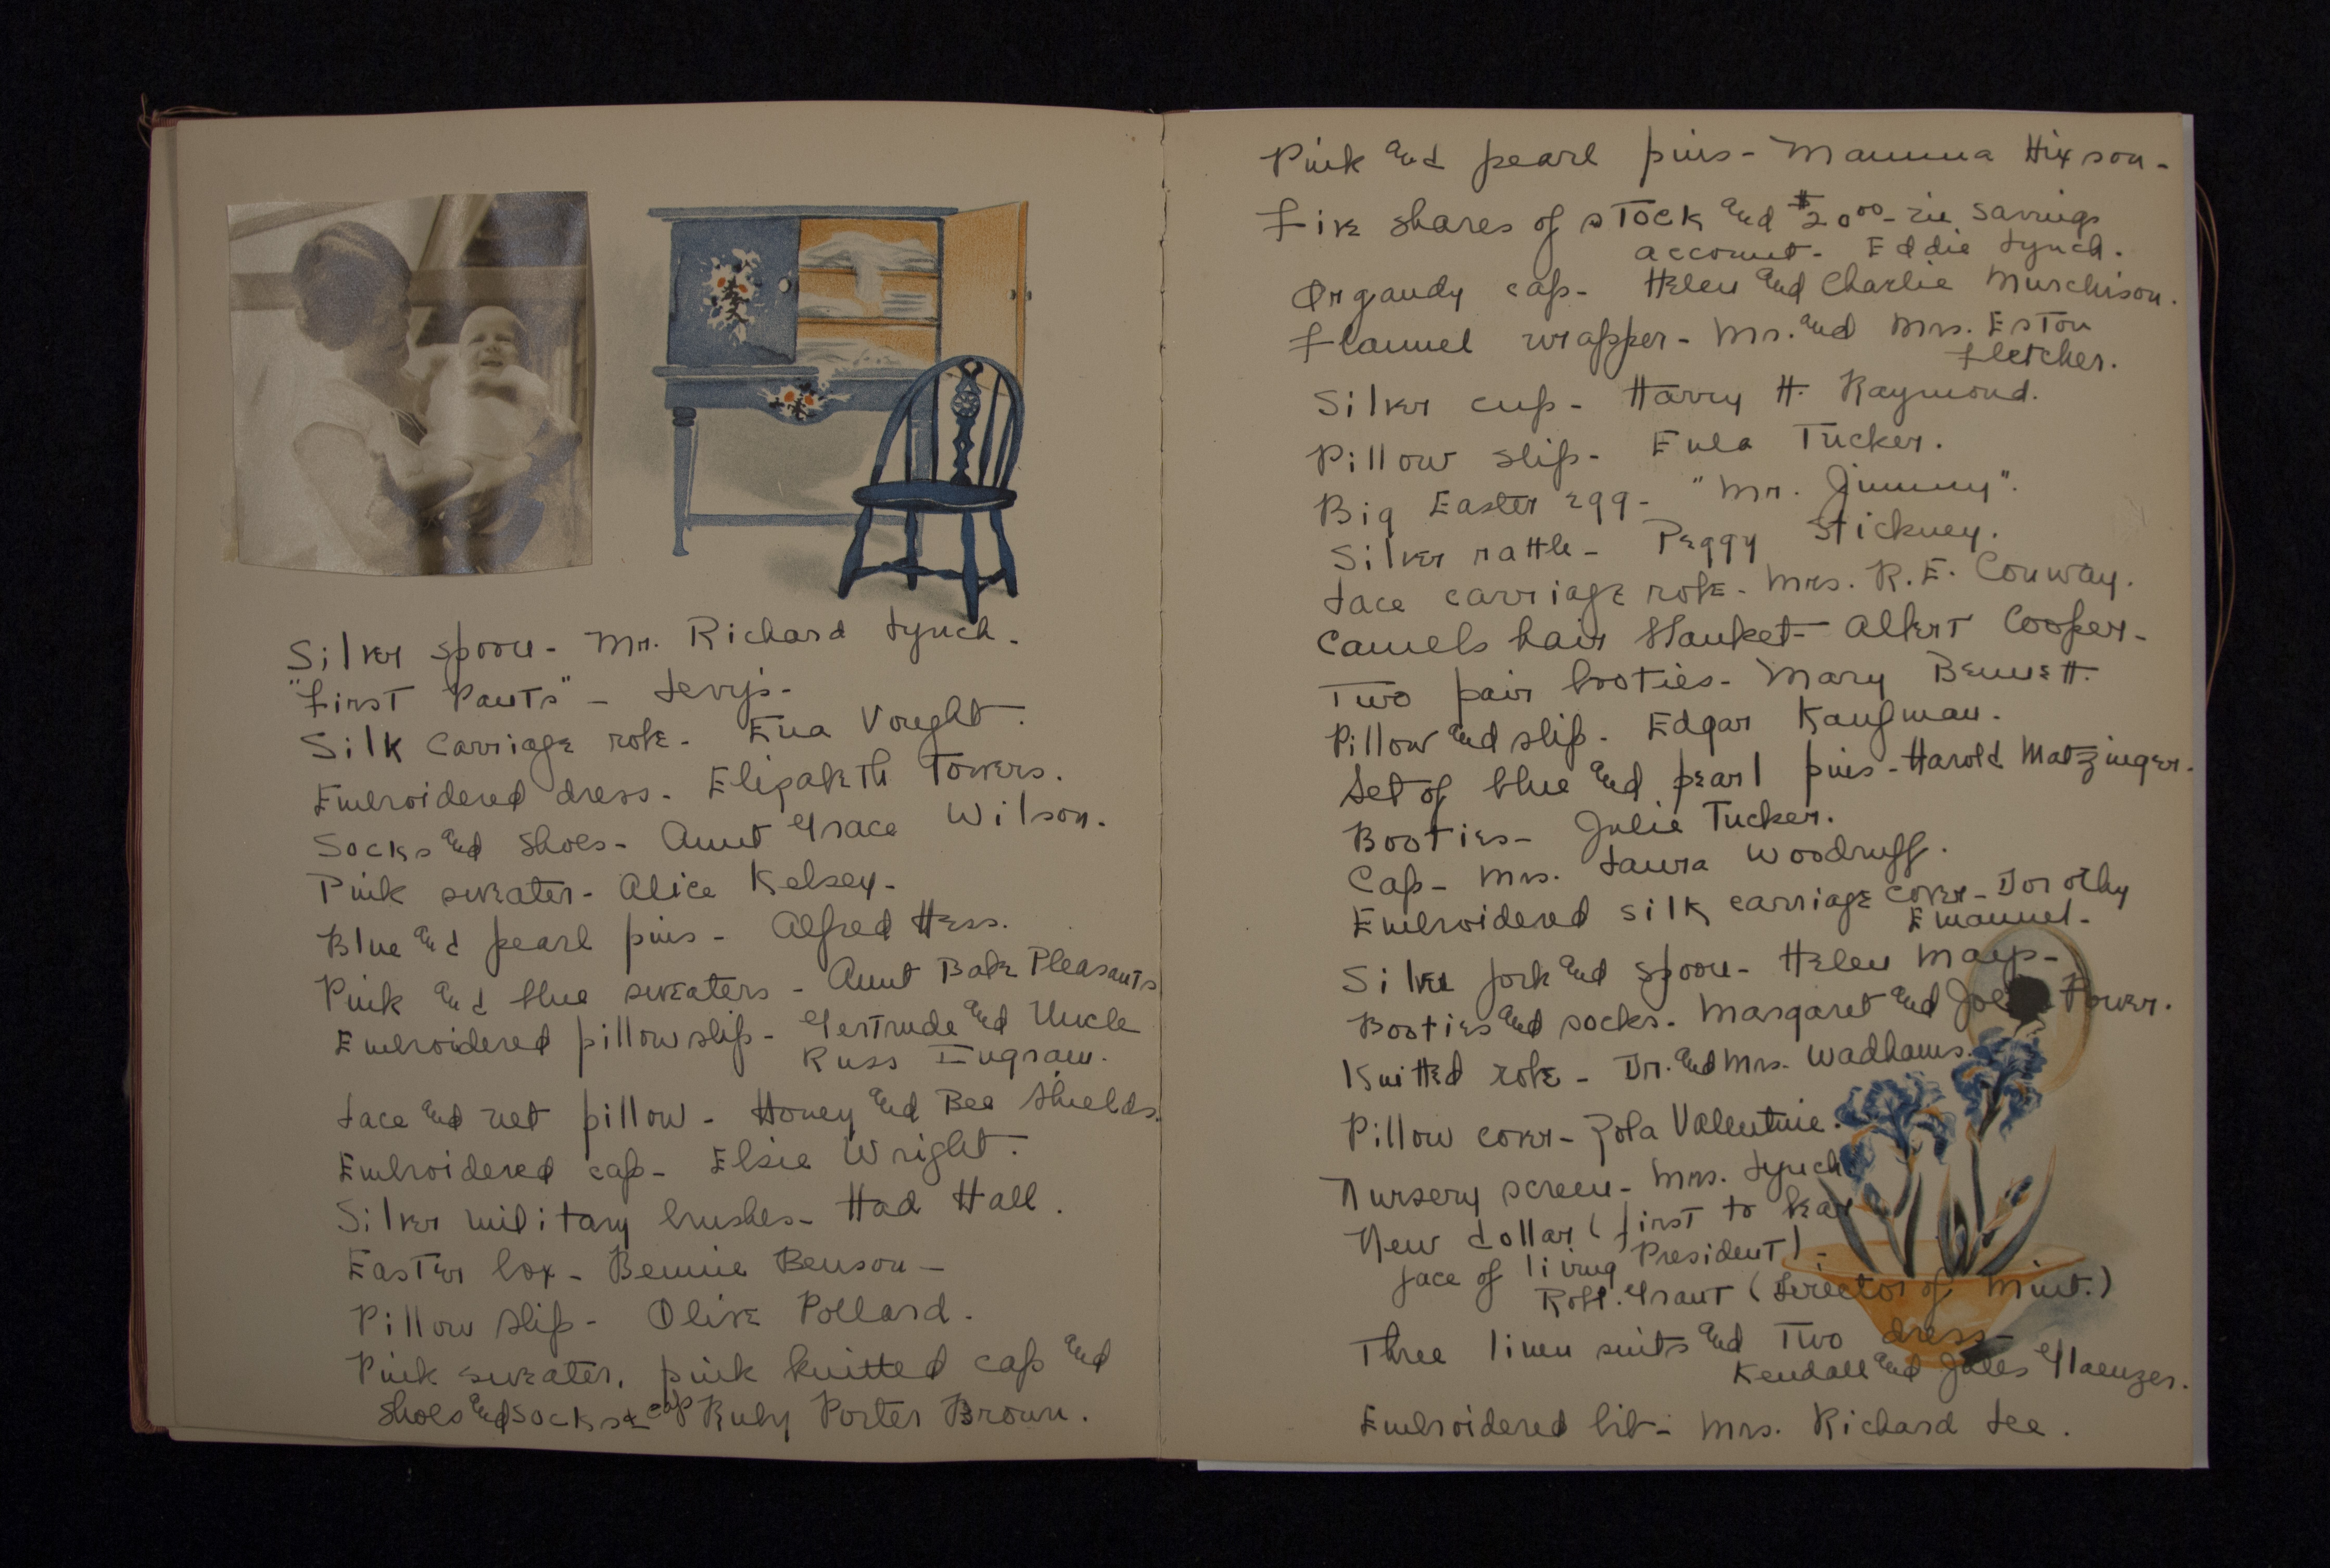 Silver spoon - Mr. Richard Lynch -
"First Pants" - Levy's -
Silk carriage robe - Ena Vought.
Embroidered dress - Elizabeth Towers.
Socks and shoes - Aunt Grace Wilson.
Pink sweater - Alice Kelsey -
Blue and pearl pins - Alfred Hess.
Pink and blue sweaters - Aunt Babe Pleasants
Embroidered pillow slip - Gertrude and Uncle
Russ Ingram.
Lace and net pillow - Honey and Bee Shields.
Embroidered cap - Elsie Wright.
Silver military brushes - Had Hall.
Easter box - Bennie Benson -
Pillow slip - Olive Pollard.
Pink sweater, pink knitted cap and
shoes and socks & cap Ruby Porter Brown.
Pink and pearl pins - Mamma Hixson -
Five shares of stock and $20.00 - in savings
account - Eddie Lynch.
Organdy cap - Helen and Charlie Murchison.
Flannel wrapper - Mr. and Mrs. Eston
Fletcher.
Silver cup - Harry H. Raymond.
Pillow slip - Eula Tucker.
Big Easter egg - "Mr. Jimmy".
Silver rattle - Peggy Stickney.
Lace carriage robe - Mrs. R. E. Conway.
Camels hair blanket - Albert Cooper -
Two pair booties - Mary Bennett.
Pillow and slip - Edgar Kaufman.
Set of blue and pearl pins - Harold Matzinger.
Booties - Julie Tucker.
Cap - Mrs. Laura Woodruff.
Embroidered silk carriage cover - Dorothy
Emanuel -
Silver fork and spoon - Helen
Booties and socks - Margaret and Joe Power.
Knitted robe - Dr. and Mrs. Wadhams.
Pillow cover - Zola Valentine.
Nursery screen - Mrs. Lynch
New dollar (first to bear
face of living President) -
Robt. Grant (Director of Mint.)
Three linen suits and Two dress -
Kendall and Jules Glaenzer.
Embroidered bib - Mrs. Richard Lee.